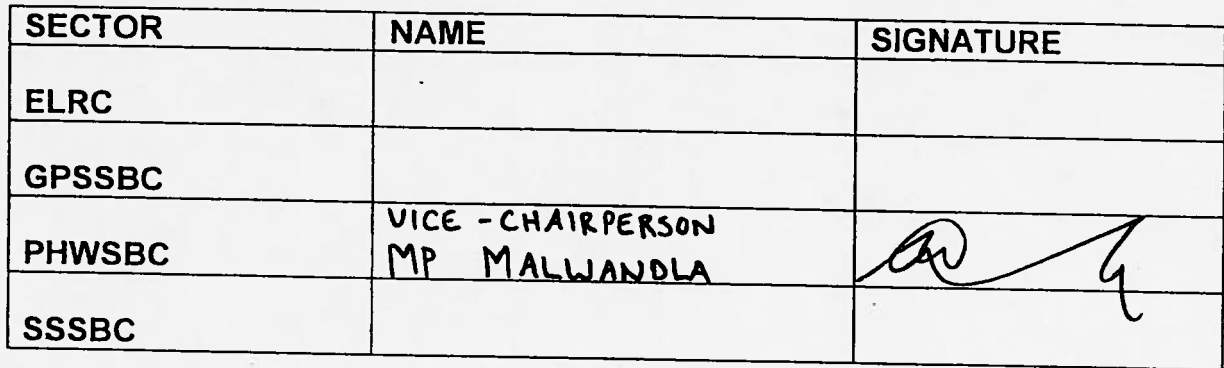 SECTOR NAME SIGNATURE
ELRC
GPSSBC
PHWSBC VICE -CHAIRPERSON
MP MALWANDLA
SSSBC